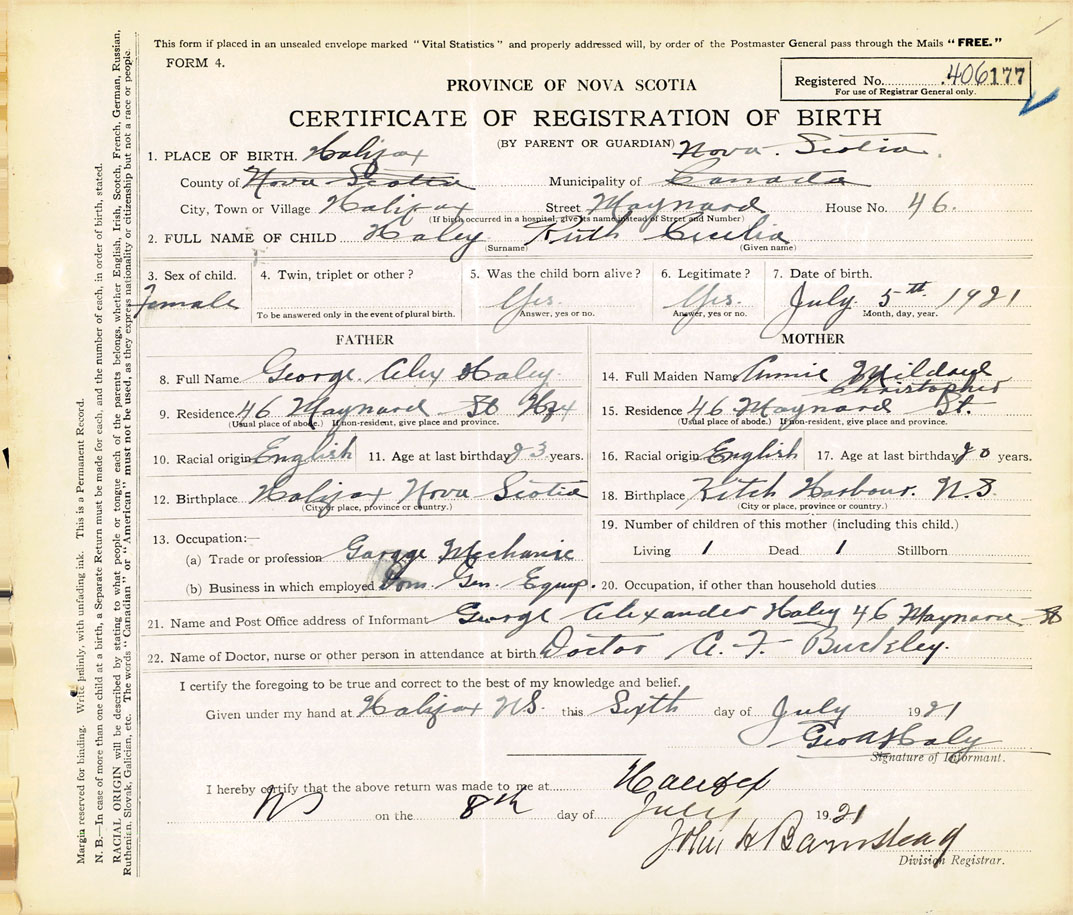 This form if placed in an unsealed envelope marked "Vital Statistics" and properly addressed will, by order of the Postmaster General pass through the Mails "FREE."
FORM 4.
Registered No. 406177
For use of Registrar General only.
PROVINCE OF NOVA SCOTIA
CERTIFICATE OF REGISTRATION OF BIRTH
(BY PARENT OR GUARDIAN)
1. PLACE OF BIRTH. Halifax Nova Scotia
County of Nova Scotia Municipality of Canada
City, Town or Village Halifax Street Maynard House No. 46.
(If birth occurred in a hospital, give its name instead of Street and Number)
2. FULL NAME OF CHILD Haley Ruth Cecilia
(Surname) (Given name)
3. Sex of child. 4. Twin, triplet or other? 5. Was the child born alive? 6. Legitimate? 7. Date of birth.
Female Yes. Yes. July 5th 1921
To be answered only in the event of plural birth. Answer, yes or no. Answer, yes or no. Month, day, year.
FATHER MOTHER
8. Full Name George Alex Haley 14. Full Maiden Name Annie Mildred Christopher
9. Residence 46 Maynard St Hfx 15. Residence 46 Maynard St.
(Usual place of abode.) If non-resident, give place and province. (Usual place of abode.) If non-resident, give place and province.
10. Racial origin English 11. Age at last birthday 23 years. 16. Racial origin English 17. Age at last birthday 20 years.
12. Birthplace Halifax Nova Scotia 18. Birthplace Harbour. N.S.
(City or place, province or country.) (City or place, province or country.)
13. Occupation:— 19. Number of children of this mother (including this child.)
(a) Trade or profession Garage Mechanic Living 1 Dead 1 Stillborn
(b) Business in which employed Dom. Gen. Equip. 20. Occupation, if other than household duties
21. Name and Post Office address of Informant George Alexander Haley 46 Maynard St
22. Name of Doctor, nurse or other person in attendance at birth. Doctor A. F. Buckley.
I certify the foregoing to be true and correct to the best of my knowledge and belief.
Given under my hand at Halifax NS. this Sixth day of July 1921
Geo A Haley
Signature of Informant.
I hereby certify that the above return was made to me at Halifax
NS on the 8th day of July 1921
John H Barnstead
Division Registrar.
Margin reserved for binding. Write plainly, with unfading ink. This is a Permanent Record.
N. B.—In case of more than one child at a birth, a Separate Return must be made for each, and the number of each, in order of birth, stated.
RACIAL ORIGIN will be described by stating to what people or tongue each of the parents belongs, whether English, Irish, Scotch, French, German, Russian,
Ruthenian, Slovak, Galician, etc. The words "Canadian" or "American" must not be used, as they express nationality or citizenship but not a race or people.